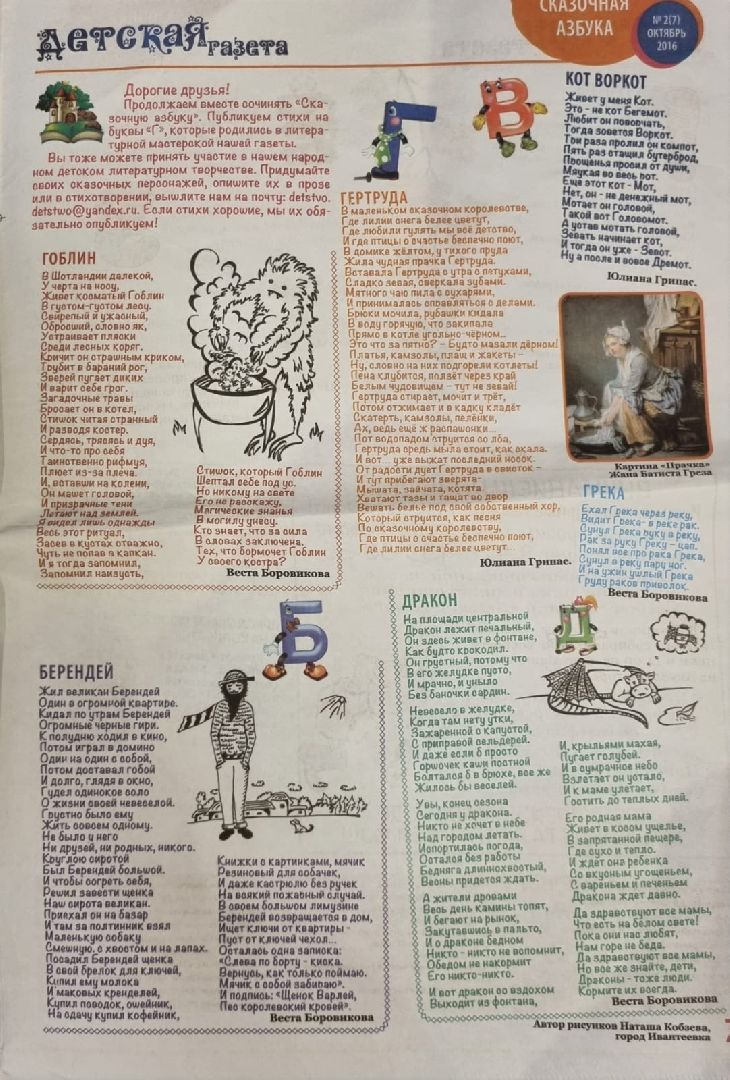 ДЕТСКАЯ газета
СКАЗОЧНАЯ
АЗБУКА
№ 2(7)
ОКТЯБРЬ
2016
Дорогие друзья!
Продолжаем вместе сочинять «Ска-
зочную азбуку». Публикуем стихи на
буквы «Г», которые родились в литера-
турной мастерской нашей газеты.
Вы тоже можете принять участие в нашем народ-
ном детском литературном творчестве. Придумайте
своих сказочных персонажей, опишите их в прозе
или в стихотворении, вышлите нам на почту: detstvo.
detstwo@yandex.ru. Если стихи хорошие, мы их обя-
зательно опубликуем!
Г
В
ГОБЛИН
В Шотландии далекой,
У черта на носу,
Живет косматый Гоблин
В густом-густом лесу.
Свирепый и ужасный,
Обросший, словно як,
Устраивает пляски
Среди лесных коряг.
Кричит он страшным криком,
Трубит в бараний рог,
Зверей пугает диких
И варит себе грог.
Загадочные травы
Бросает он в котел,
Стишок читая странный
И разводя костер.
Сердясь, трясясь и дуя,
И что-то про себя
Таинственно рифмуя,
Плюет из-за плеча.
И, вставши на колени,
Он машет головой,
И призрачные тени
Летают над землей.
Я видел лишь однажды
Весь этот ритуал,
Засев в кустах отважно,
Чуть не попав в капкан.
И я тогда запомнил,
Запомнил наизусть,
Стишок, который Гоблин
Шептал себе под ус.
Но никому на свете
Его не расскажу,
Магические знанья
В могилу унесу.
Кто знает, что за сила
В словах заключена.
Тех, что бормочет Гоблин
У своего костра?
Веста Боровикова
ГЕРТРУДА
В маленьком сказочном королевстве,
Где лилии снега белее цветут,
Где любили гулять мы всё детство,
И где птицы о счастье беспечно поют,
В домике жёлтом, у тихого пруда
Жила чудная прачка Гертруда.
Вставала Гертруда с утра с петухами,
Сладко зевая, сверкала зубами.
Мятного чаю пила с сухарями,
И принималась справляться с делами.
Брюки мочила, рубашки кидала
В воду горячую, что закипала
Прямо в котле угольно-чёрном...
Это что за пятно? – Будто мазали дёрном!
Платья, камзолы, плащ и жакеты –
Ну, словно на них подгорели котлеты!
Пена клубится, ползёт через край
Белым чудовищем – тут не зевай!
Гертруда стирает, мочит и трёт,
Потом отжимает и в кадку кладёт
Скатерть, камзолы, пелёнки,
Ах, ведь ещё ж распашонки...
Пот водопадом струится со лба,
Гертруда средь мыла стоит, как скала.
И вот... уже выжат последний носок.
От радости дует Гертруда в свисток –
И тут прибегают зверята-
Мышата, зайчата, котята.
Хватают тазы и тащат во двор
Вешать бельё под свой собственный хор,
Который струится, как песня
По сказочному королевству,
Где птицы о счастье беспечно поют,
Где лилии снега белее цветут...
Юлиана Гринас.
КОТ ВОРКОТ
Живет у меня Кот.
Это - не кот Бегемот.
Любит он поворчать,
Тогда зовется Воркот.
Три раза пролил он компот,
Пять раз стащил бутерброд,
Прощенья просил от души,
Мяукая во весь рот.
Ещё этот кот - Мот,
Нет, он - не денежный мот,
Мотает он головой,
Такой вот Головомот.
А устав мотать головой,
Зевать начинает кот,
И тогда он уже - Зевот.
Ну а после и вовсе Дремот.
Юлиана Гринас.
Картина «Прачка»
Жана Батиста Греза
ГРЕКА
Ехал Грека через реку,
Видит Грека - в реке рак.
Сунул Грека руку в реку,
Рак за руку Греку – цап.
Понял все про рака Грека,
Сунул в реку пару ног.
И на ужин ушлый Грека
Груду раков приволок.
Веста Боровикова
Б
БЕРЕНДЕЙ
Жил великан Берендей
Один в огромной квартире.
Кидал по утрам Берендей
Огромные черные гири.
К полудню ходил в кино,
Потом играл в домино
Один на один с собой,
Потом доставал гобой
И долго, глядя в окно,
Гудел одинокое соло
О жизни своей невеселой.
Грустно было ему
Жить совсем одному.
Не было у него
Ни друзей, ни родных, никого.
Круглою сиротой
Был Берендей большой.
И чтобы согреть себя,
Решил завести щенка
Наш сирота великан.
Приехал он на базар
И там за полтинник взял
Маленькую собаку
Смешную, с хвостом и на лапах.
Посадил Берендей щенка
В свой брелок для ключей,
Купил ему молока
И маковых кренделей,
Купил поводок, ошейник,
На сдачу купил кофейник,
Книжки с картинками, мячик
Резиновый для собачек,
И даже кастрюлю без ручек
На всякий пожарный случай.
В своем большом лимузине
Берендей возвращается в дом,
Ищет ключи от квартиры -
Пуст от ключей чехол...
Осталась одна записка:
«Слева по борту - киска.
Вернусь, как только поймаю.
Мячик с собой забираю».
И подпись: «Щенок Варлей,
Пес королевский кровей».
Веста Боровикова
Д
ДРАКОН
На площади центральной
Дракон лежит печальный,
Он здесь живет в фонтане,
Как будто крокодил.
Он грустный, потому что
В его желудке пусто,
И мрачно, и уныло
Без баночки сардин.
Невесело в желудке,
Когда там нету утки,
Зажаренной с капустой,
С приправой сельдерей.
И даже если б просто
Горшочек каши постной
Болтался б в брюхе, все же
Жилось бы веселей.
Увы, конец сезона
Сегодня у дракона.
Никто не хочет в небе
Над городом летать.
Испортилась погода,
Остался без работы
Бедняга длиннохвостый,
Весны придется ждать.
А жители дровами
Весь день камины топят,
И бегают на рынок,
Закутавшись в пальто,
И о драконе бедном
Никто - никто не вспомнит,
Обедом не накормит
Его никто-никто.
И вот дракон со вздохом
Выходит из фонтана,
И, крыльями махая,
Пугает голубей.
И в сумрачное небо
Взлетает он устало,
И к маме улетает,
Гостить до теплых дней.
Его родная мама
Живет в косом ущелье,
В запрятанной пещере,
Где сухо и тепло.
И ждёт она ребенка
Со вкусным угощеньем,
С вареньем и печеньем
Дракона ждет давно.
Да здравствуют все мамы,
Что есть на белом свете!
Пока они нас любят,
Нам горе не беда.
Да здравствуют все мамы,
Но все же знайте, дети,
Драконы - тоже люди.
Кормите их всегда.
Веста Боровикова
Автор рисунков Наташа Кобзева,
город Ивантеевка